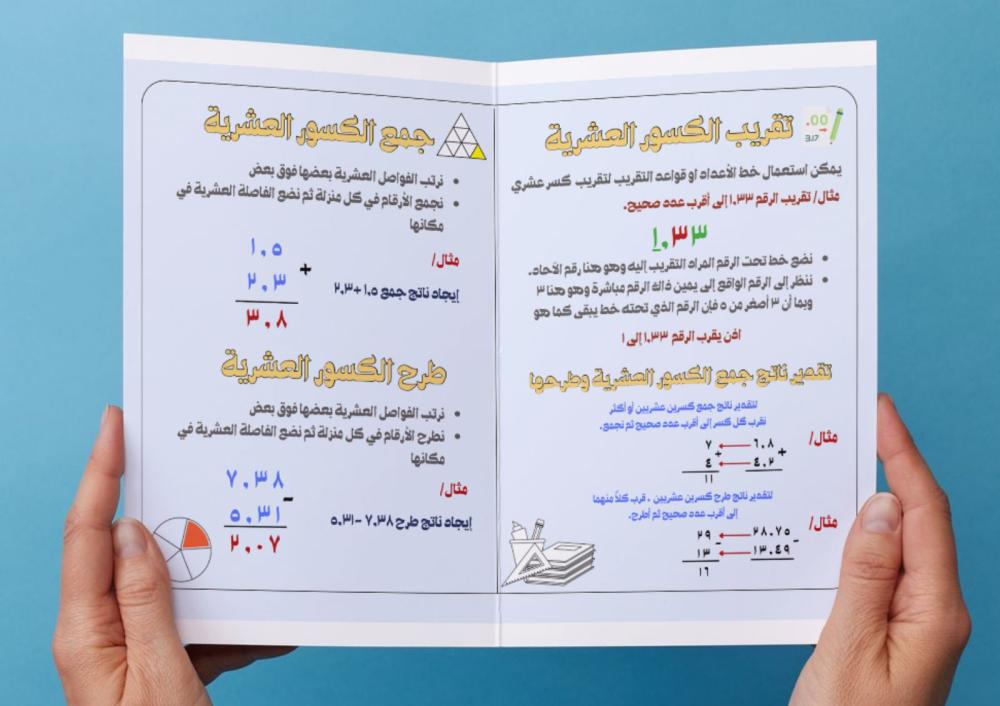 تقريب الكسور العشرية
.00
3.17
يمكن استعمال خط الأعداد او قواعد التقريب لتقريب كسر عشري
مثال/ تقريب الرقم ١.٣٣ إلى أقرب عدد صحيح.
١.٣٣
نضع خط تحت الرقم المراد التقريب إليه وهو هنا رقم الآحاد.
ننظر إلى الرقم الواقع إلى يمين ذاك الرقم مباشرة وهو هنا ٣
وبما أن ٣ أصغر من ٥ فإن الرقم الذي تحته خط يبقى كما هو
اذن يقرب الرقم ١.٣٣ إلى ١
تقدير ناتج جمع الكسور العشرية وطرحها
لتقدير ناتج جمع كسرين عشريين أو أكثر
نقرب كل كسر إلى أقرب عدد صحيح ثم نجمع.
مثال/
٦.٨ ٧
+ ٤.٢ + ٤
١١
لتقدير ناتج طرح كسرين عشريين ، قرب كلاً منهما
إلى أقرب عدد صحيح ثم أطرح.
مثال/
٢٨.٧٥ ٢٩
- ١٣.٤٩ - ١٣
١٦
جمع الكسور العشرية
نرتب الفواصل العشرية بعضها فوق بعض
نجمع الأرقام في كل منزلة ثم نضع الفاصلة العشرية في
مكانها
مثال/
إيجاد ناتج جمع ١.٥ +٢.٣
١.٥
+
٢.٣
٣.٨
طرح الكسور العشرية
نرتب الفواصل العشرية بعضها فوق بعض
نطرح الأرقام في كل منزلة ثم نضع الفاصلة العشرية في
مكانها
مثال/
إيجاد ناتج طرح ٧.٣٨ -٥.٣١
٧.٣٨
-
٥.٣١
٢.٠٧